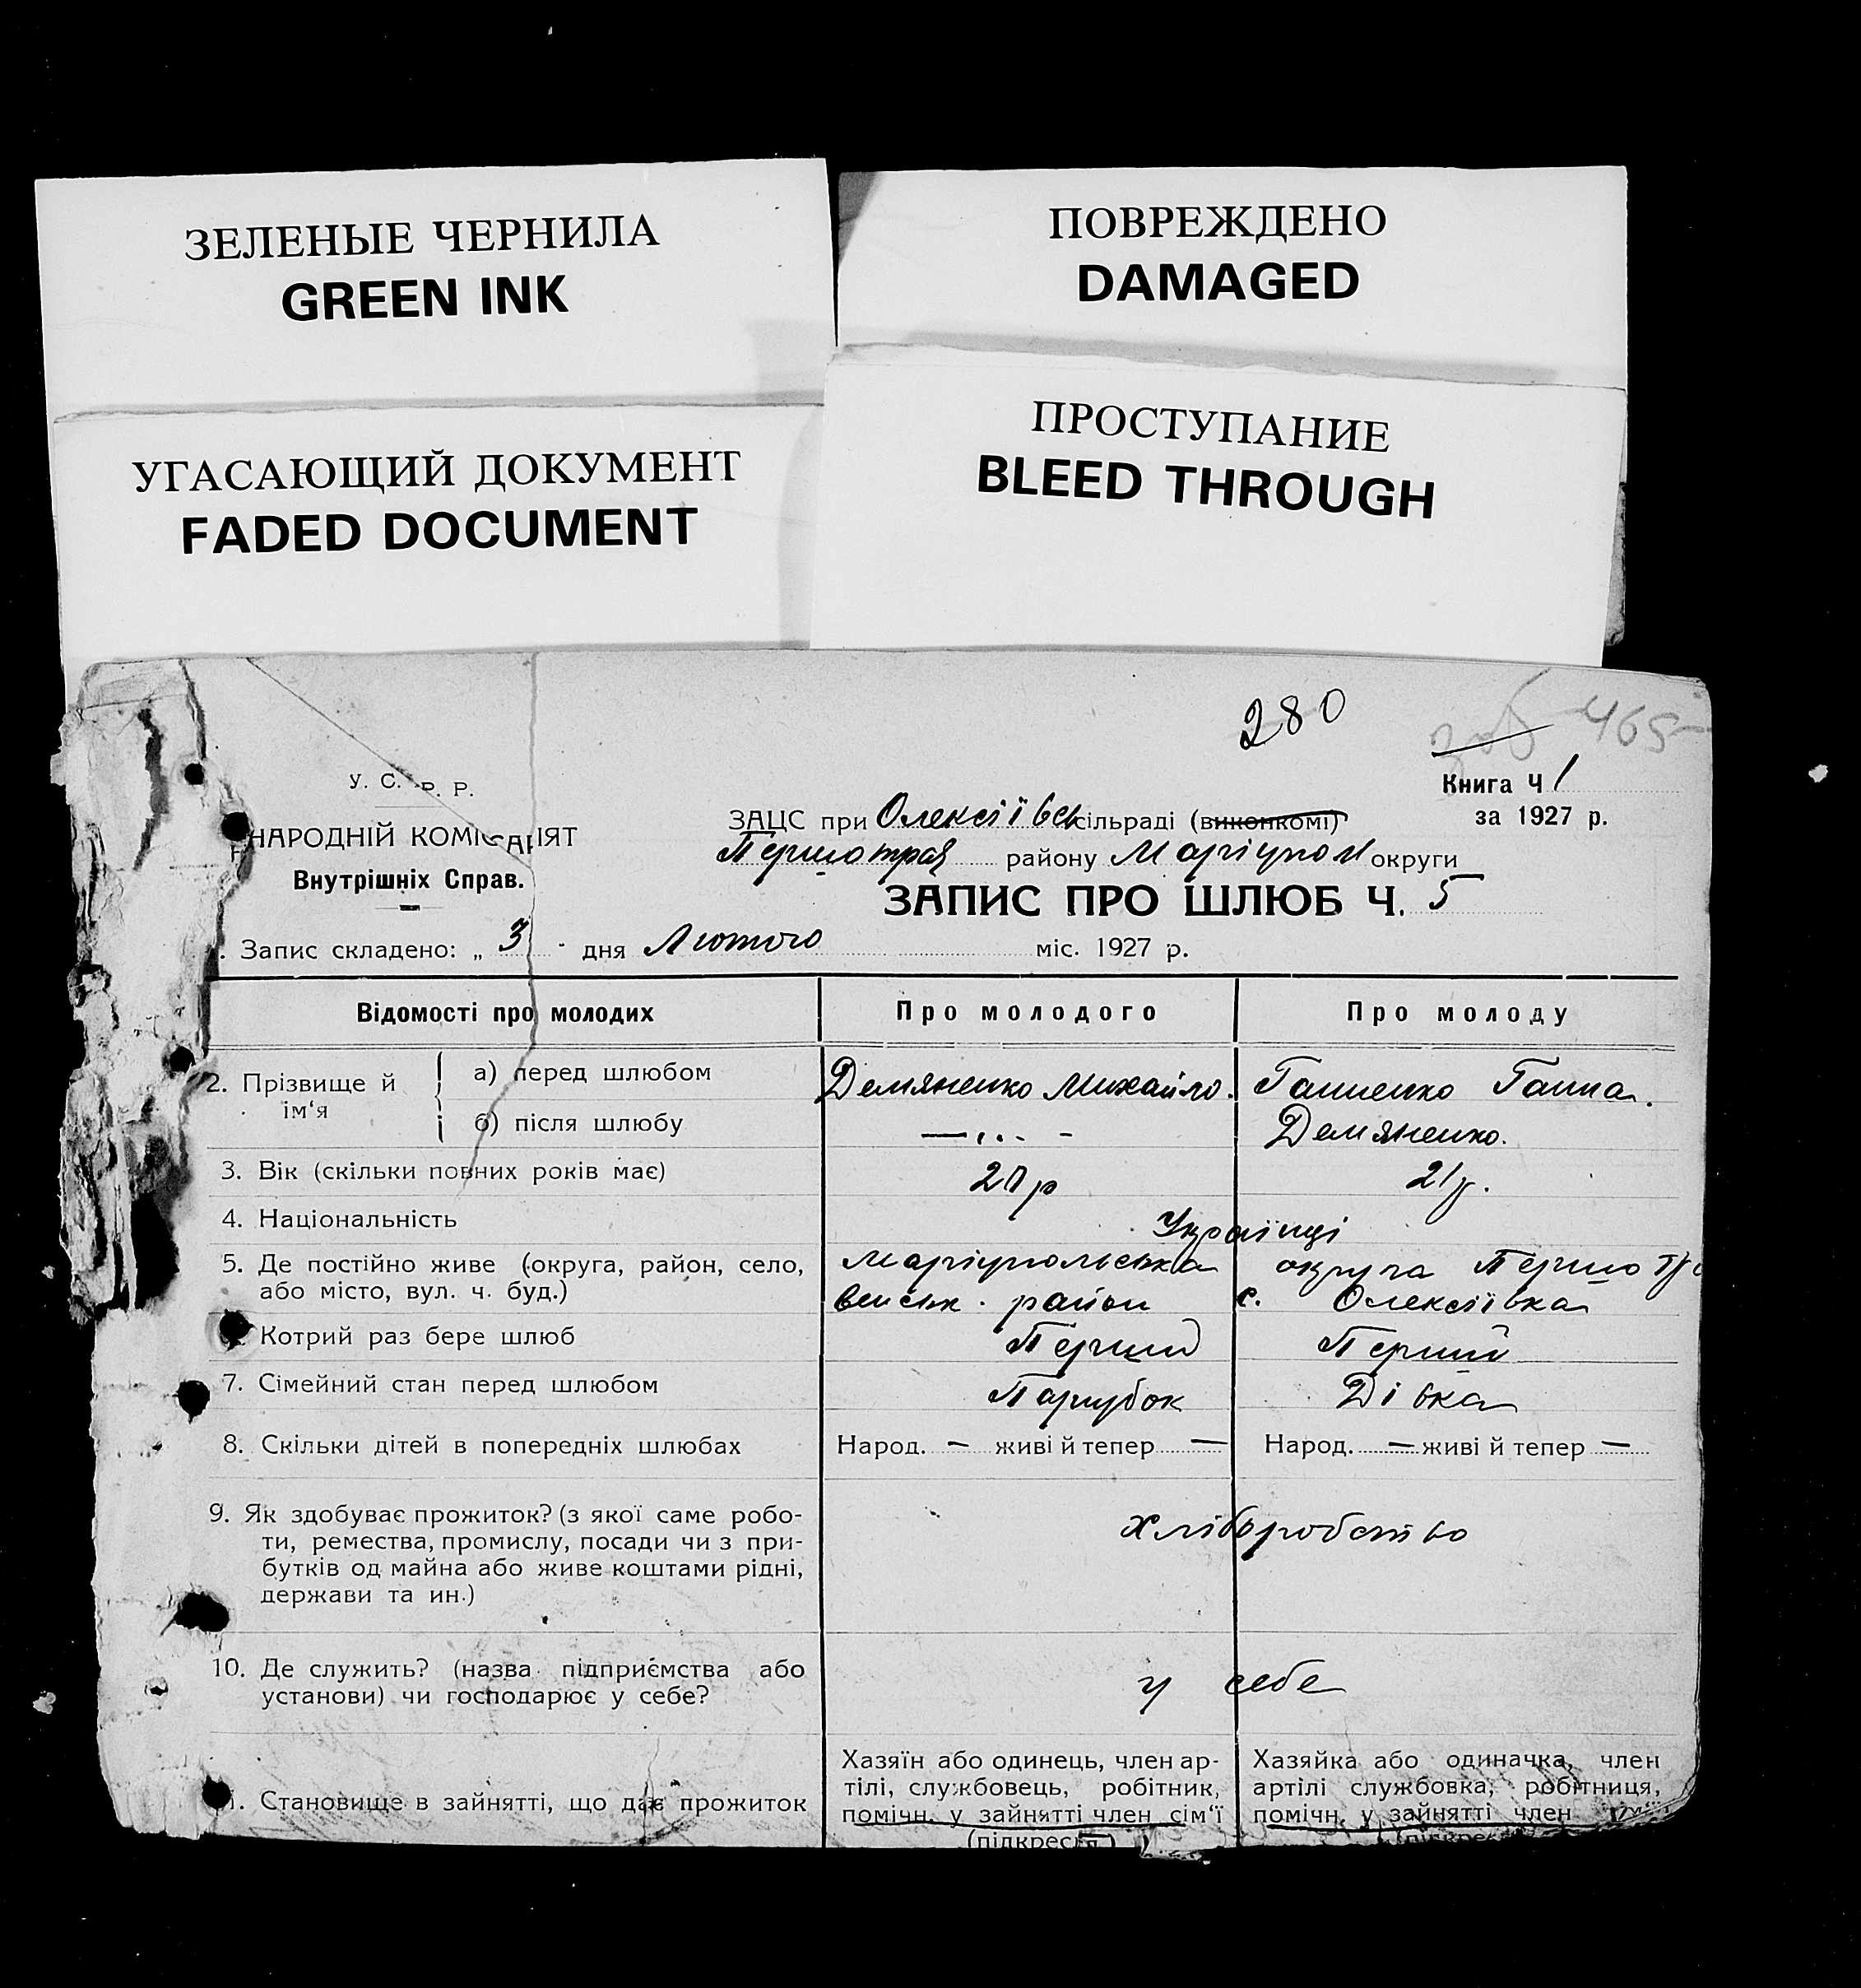 ЗЕЛЕНЫЕ ЧЕРНИЛА
GREEN INK
ПОВРЕЖДЕНО
DAMAGED
УГАСАЮЩИЙ ДОКУМЕНТ
FADED DOCUMENT
ПРОСТУПАНИЕ
BLEED THROUGH
280
465
У. С. Р. Р.
НАРОДНІЙ КОМІСАРІЯТ
Внутрішніх Справ.
Книга Ч 1
за 1927 р.
ЗАЦС при Олексіївськ сільраді (виконкомі)
Першотрав району Маріупол округи
ЗАПИС ПРО ШЛЮБ Ч. 5
Запис складено: „ 3 " дня Лютого міс. 1927 р.
Відомості про молодих Про молодого Про молоду
2. Прізвище й ім‘я а) перед шлюбом Демяненко Михайло. Ганненко Ганна.
б) після шлюбу — „ - Демяненко.
3. Вік (скільки повних років має) 20 р 21 р.
4. Національність Українці
5. Де постійно живе (округа, район, село, Маріупольська округа Першотра
або місто, вул. ч. буд.) венськ. район с. Олексіївка
Котрий раз бере шлюб Перший Перший
7. Сімейний стан перед шлюбом Парубок Дівка
8. Скільки дітей в попередніх шлюбах Народ. — живі й тепер — Народ. — живі й тепер —
9. Як здобуває прожиток? (з якої саме робо-
ти, ремества, промислу, посади чи з при- хліборобство
бутків од майна або живе коштами рідні,
держави та ин.)
10. Де служить? (назва підприємства або
установи) чи господарює у себе? у себе
11. Становище в зайнятті, що дає прожиток
Хазяїн або одинець, член ар-
тілі, службовець, робітник,
помічн. у зайнятті член сім‘ї
(підкресл.)
Хазяйка або одиначка, член
артілі службовка, робітниця,
помічн. у зайнятті член